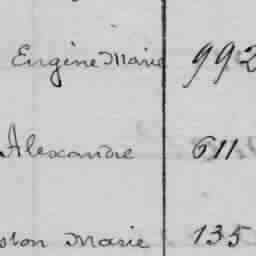 Eugène Marie 992
Alexandre 611
ston Marie 135